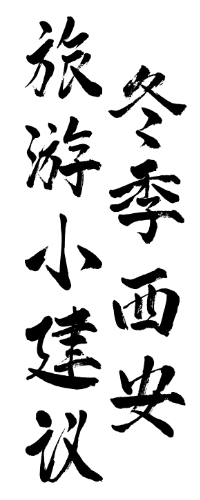 冬季西安
旅游小建议